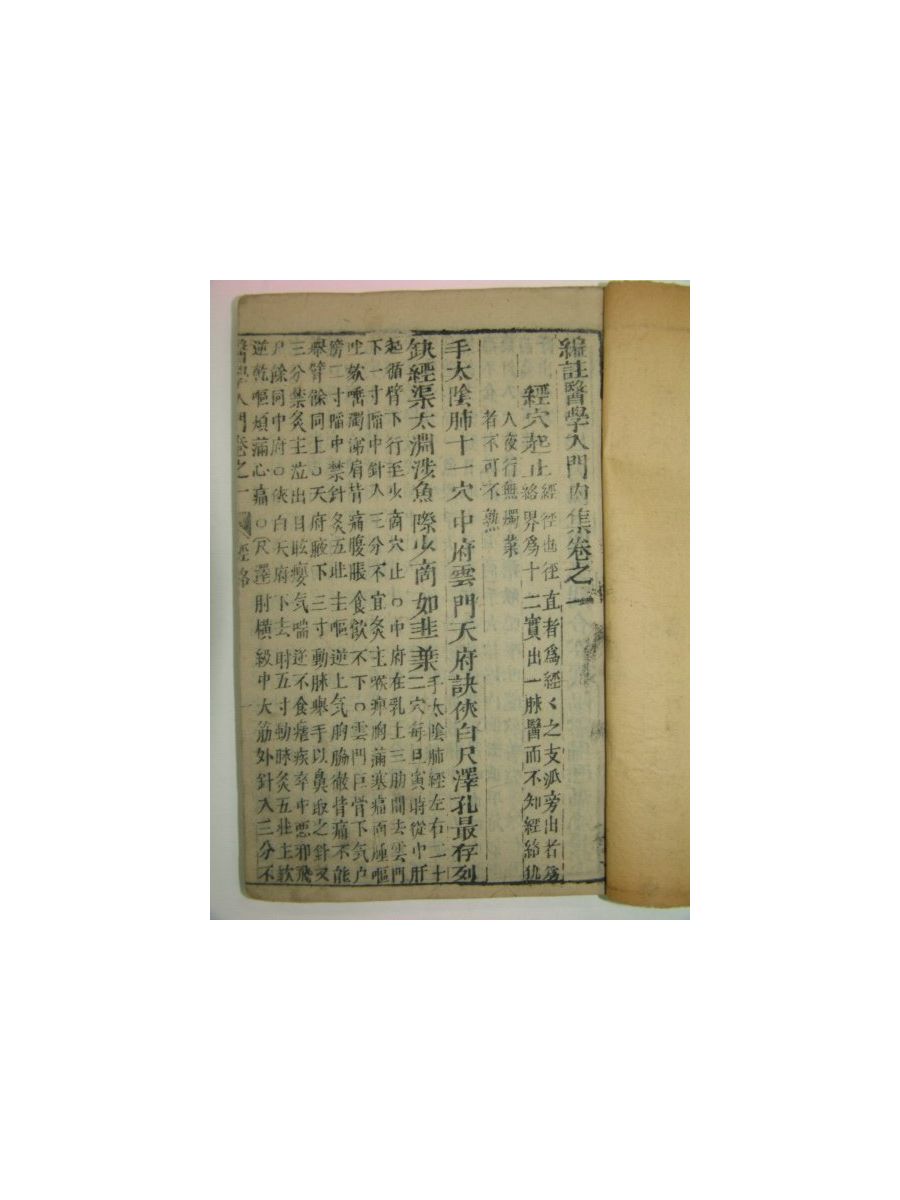 編註醫學入門內集卷之一
經穴起止
經徑也徑直者為經〻之支派旁出者為
絡界為十二實出一脉醫而不知經絡猶
人夜行無燭業
者不可不熟
手太陰肺十一穴中府雲門天府訣俠白尺澤孔最存列
缺經渠太淵涉魚際少商如韭葉
手太陰肺經左右二十
二穴每旦寅時從中肝
起循臂下行至少商穴止○中府在乳上三肋間去雲門
下一寸陷中針入三分不宜灸主喉痺胸滿塞痛面腫嘔
吐欬唾濁涕肩背痛腹脹食飲不下○雲門巨骨下气户
傍二寸陷中禁針灸五壯主嘔逆上气胸脇徹背痛不能
舉臂餘同上○天府腋下三寸動脉舉手以鼻取之針入
三分禁灸主泣出目眩癭气喘逆不食瘧疾卒中惡邪飛
尸餘同中府○俠白天府下去肘五寸動脉灸五壯主欬
逆乾嘔煩滿心痛○尺澤肘橫紋中大筋外針入三分不
醫學入門卷之一 經絡 一